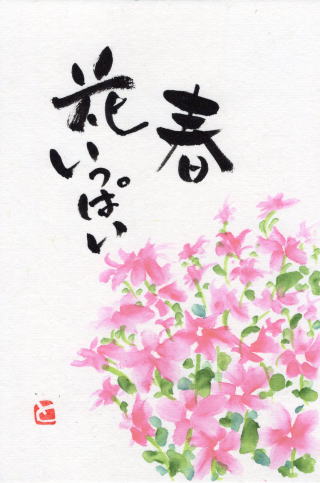 春
花いっぱい
と